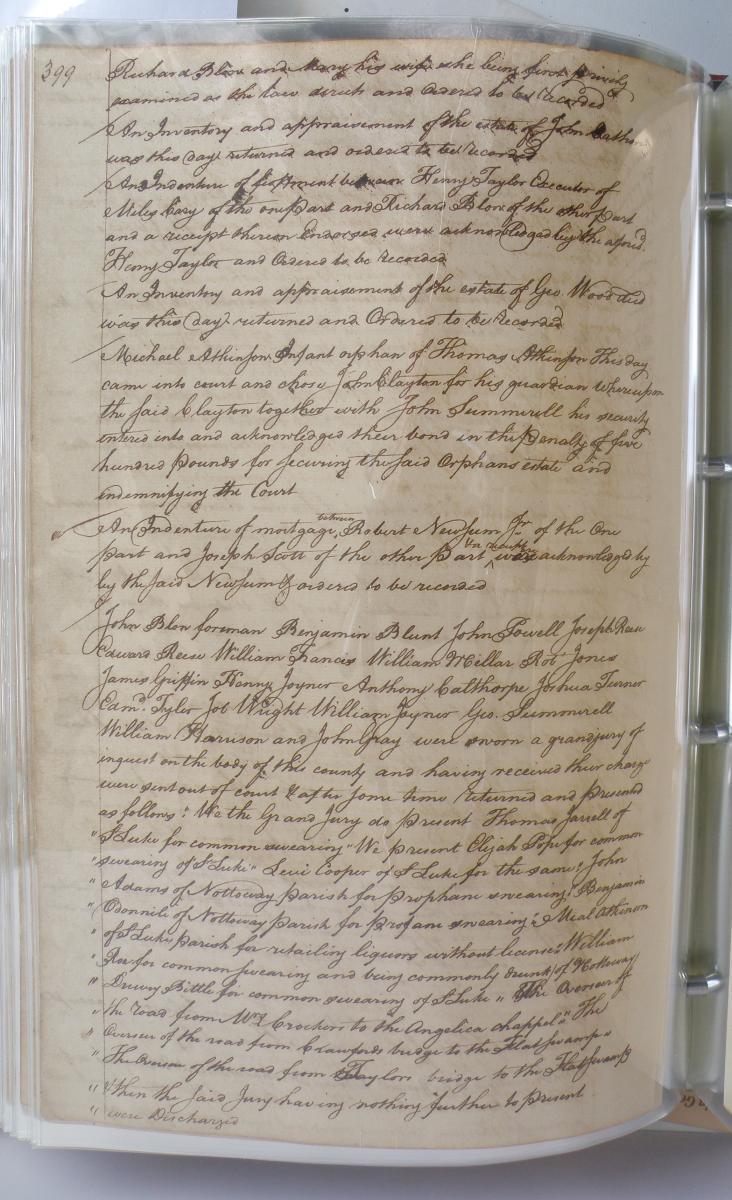 399
Richard Blow and Mary his wife she being first privily
examined as the law directs and Ordered to be recorded
An Inventory and appraisement of the estate of John
was this day returned and ordered to be recorded
An Indenture of feofment between Henry Taylor Executor of
Miles Cary of the one part and Richard Blow of the other part
and a receipt thereon Endorsed were acknowledged by the aforsd.
Henry Taylor and Ordered to be recorded
An Inventory and appraisement of the estate of Geo. Wood decd
was this day returned and Ordered to be recorded
Michael Atkinson Infant orphan of Thomas Atkinson This day
came into court and chose John Clayton for his guardian Whereupon
the said Clayton together with John Summerell his security
entered into and acknowledged their bond in the penalty of five
hundred pounds for securing the said Orphans estate and
indemnifying the Court
An Indenture of mortgage between Robert Newsum Jr. of the One
part and Joseph Scott of the other part was acknowledged by
by the said Newsum & ordered to be recorded
John Blow foreman Benjamin Blunt John Powell Joseph Reese
Edward Reese William Francis William Millar Rob. Jones
James Griffin Henry Joyner Anthony Calthorpe Joshua Turner
Edmd. Tyler Job Wright William Joyner Geo. Summerell
William Harrison and John Gray were sworn a grandjury of
inquest on the body of this county and having received their charge
were sent out of court & after some time returned and presented
as follows: We the Grand Jury do present Thomas Jarrell of
" St Luke for common swearing " We present Elijah Pope for common
" swearing of St Luke " Levi Cooper of St Luke for the same " John
" Adams of Nottoway parish for prophane swearing " Benjamin
" Odonnile of Nottoway parish for profane swearing " Meal Atkinson
" of St Luke parish for retailing liquors without license " William
" for common swearing and being commonly drunk of Nottoway
" Drewry Bittle for common swearing of St Luke " The Overseer of
" the road from Crockers to the Angelica chappel " The
" Overseer of the road from Crawfords bridge to the Flat swamp "
" The Overseer of the road from Taylors bridge to the Flat swamp
" then the said Jury having nothing further to present
" were Discharged